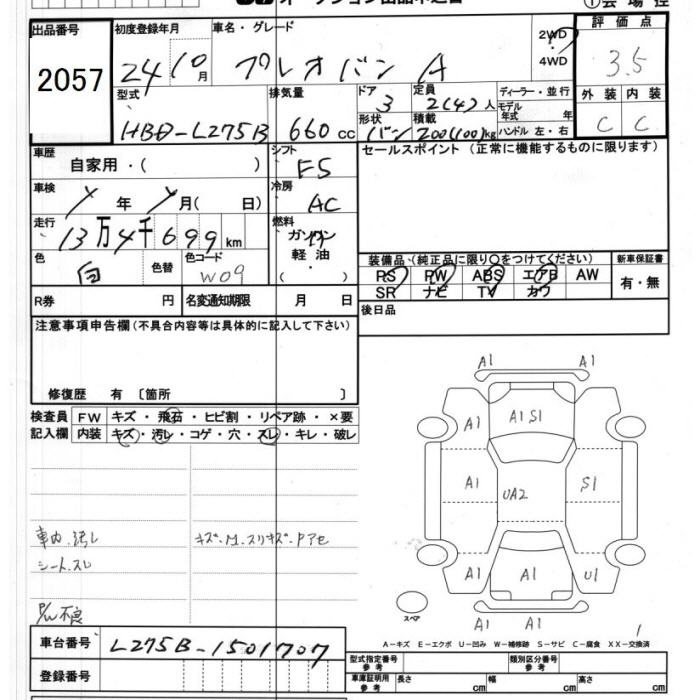 オークション出品申込書
① 会場控
出品番号
2057
初度登録年月
24 10月
車名・グレード
プレオバン A
2WD
4WD
評価点
3.5
型式
HBD-L275B
排気量
660 cc
ドア
3
定員
2(4)人
ディーラー・並行
モデル年式 年
形状
バン
積載
200(100)kg
ハンドル 左・右
外装
内装
C
C
車歴
自家用・( )
シフト
F5
セールスポイント (正常に機能するものに限ります)
車検
年 月( 日)
冷房
AC
走行
13万4千699km
燃料
ガソリン
軽油
( ・ )
色
白
色替
色コード
W09
装備品 (純正品に限り○をつけてください)
PS PW ABS エアB AW
SR ナビ TV カワ
新車保証書
有・無
R券 円
名変通知期限 月 日
後日品
注意事項申告欄 (不具合内容等は具体的に記入して下さい)
修復歴 有 〔箇所 〕
検査員
記入欄
FW キズ・飛石・ヒビ割・リペア跡・×要
内装 キズ・汚レ・コゲ・穴・スレ・キレ・破レ
車内汚レ
キズ・M.スリキズ・Pアセ
シートスレ
A1 A1
A1 A1S1 A1
A1 UA2 S1
A1 A1 U1
A1 A1
スペア
A-キズ E-エクボ U-凹み W-補修跡 S-サビ C-腐食 XX-交換済
車台番号
L275B-1501707
登録番号
型式指定番号
参考
類別区分番号
参考
車庫証明用
参考
長さ cm
幅 cm
高さ cm